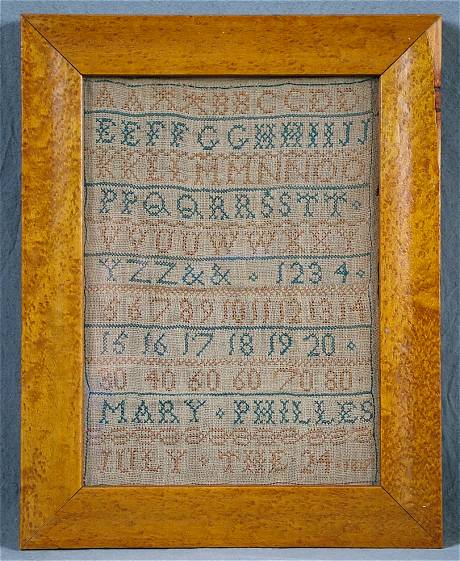 AAAABBCCDD
EEFFGGHHIIJJ
KKLLMMNNOO
PPQQRRSSTT
VVUUWWXXY
YZZ&& 1 2 3 4
5 6 7 8 9 10 11 12 13 14
15 16 17 18 19 20
30 40 60 60 70 80
MARY PHILLES
IULY THE 24